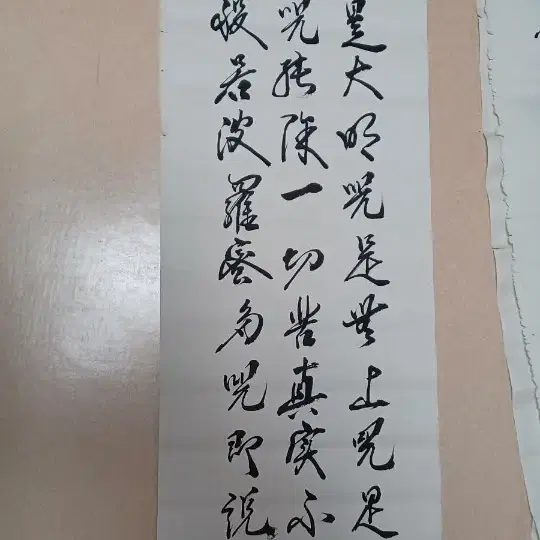 是大明咒是無上咒是
咒能除一切苦真實不
般若波羅蜜多咒即說